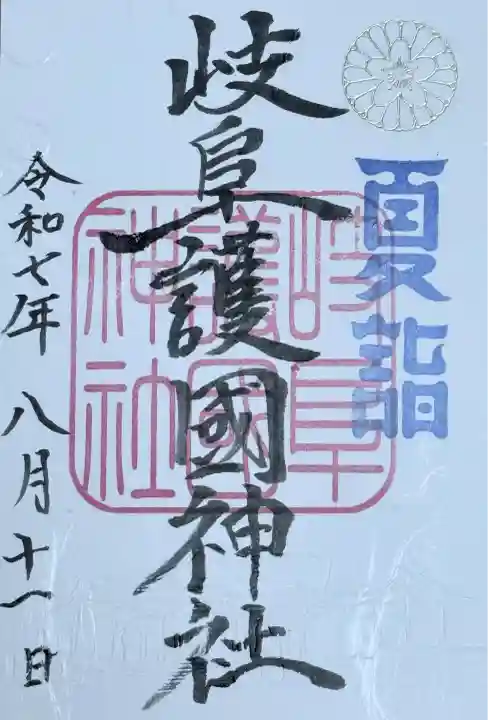 夏詣
岐阜護國神社
岐阜護國神社
令和七年 八月十一日